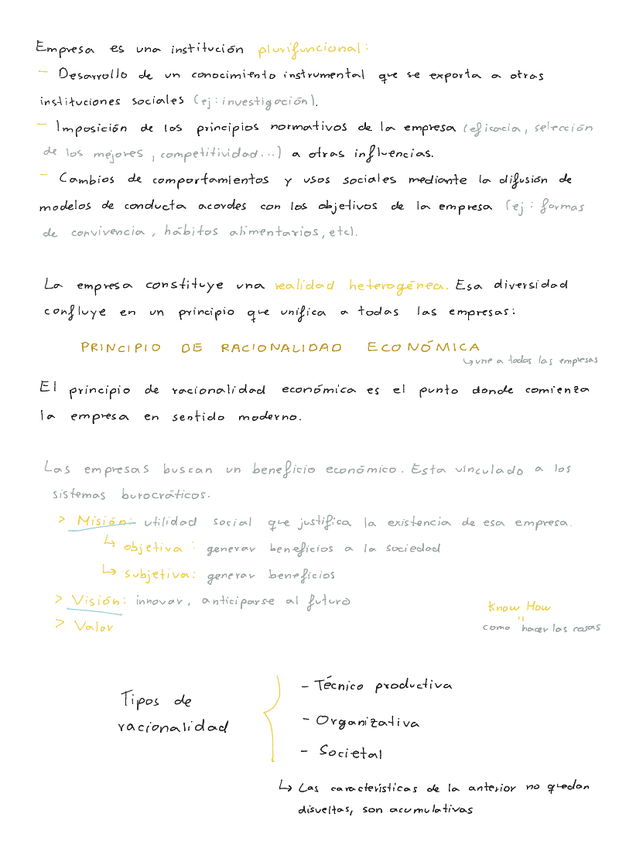 Empresa es una institución plurifuncional:
- Desarrollo de un conocimiento instrumental que se exporta a otras
instituciones sociales (ej: investigación).
- Imposición de los principios normativos de la empresa (eficacia, selección
de los mejores, competitividad...) a otras influencias.
- Cambios de comportamientos y usos sociales mediante la difusión de
modelos de conducta acordes con los objetivos de la empresa (ej: formas
de convivencia, hábitos alimentarios, etc).
La empresa constituye una realidad heterogénea. Esa diversidad
confluye en un principio que unifica a todas las empresas:
PRINCIPIO DE RACIONALIDAD ECONÓMICA
↳ une a todas las empresas
El principio de racionalidad económica es el punto donde comienza
la empresa en sentido moderno.
Las empresas buscan un beneficio económico. Esta vinculado a los
sistemas burocráticos.
> Misión: utilidad social que justifica la existencia de esa empresa.
↳ objetiva: generar beneficios a la sociedad
↳ subjetiva: generar beneficios
> Visión: innovar, anticiparse al futuro
> Valor
Know How
"
como hacer las cosas
Tipos de
racionalidad
- Técnico productiva
- Organizativa
- Societal
↳ Las características de la anterior no quedan
disueltas, son acumulativas